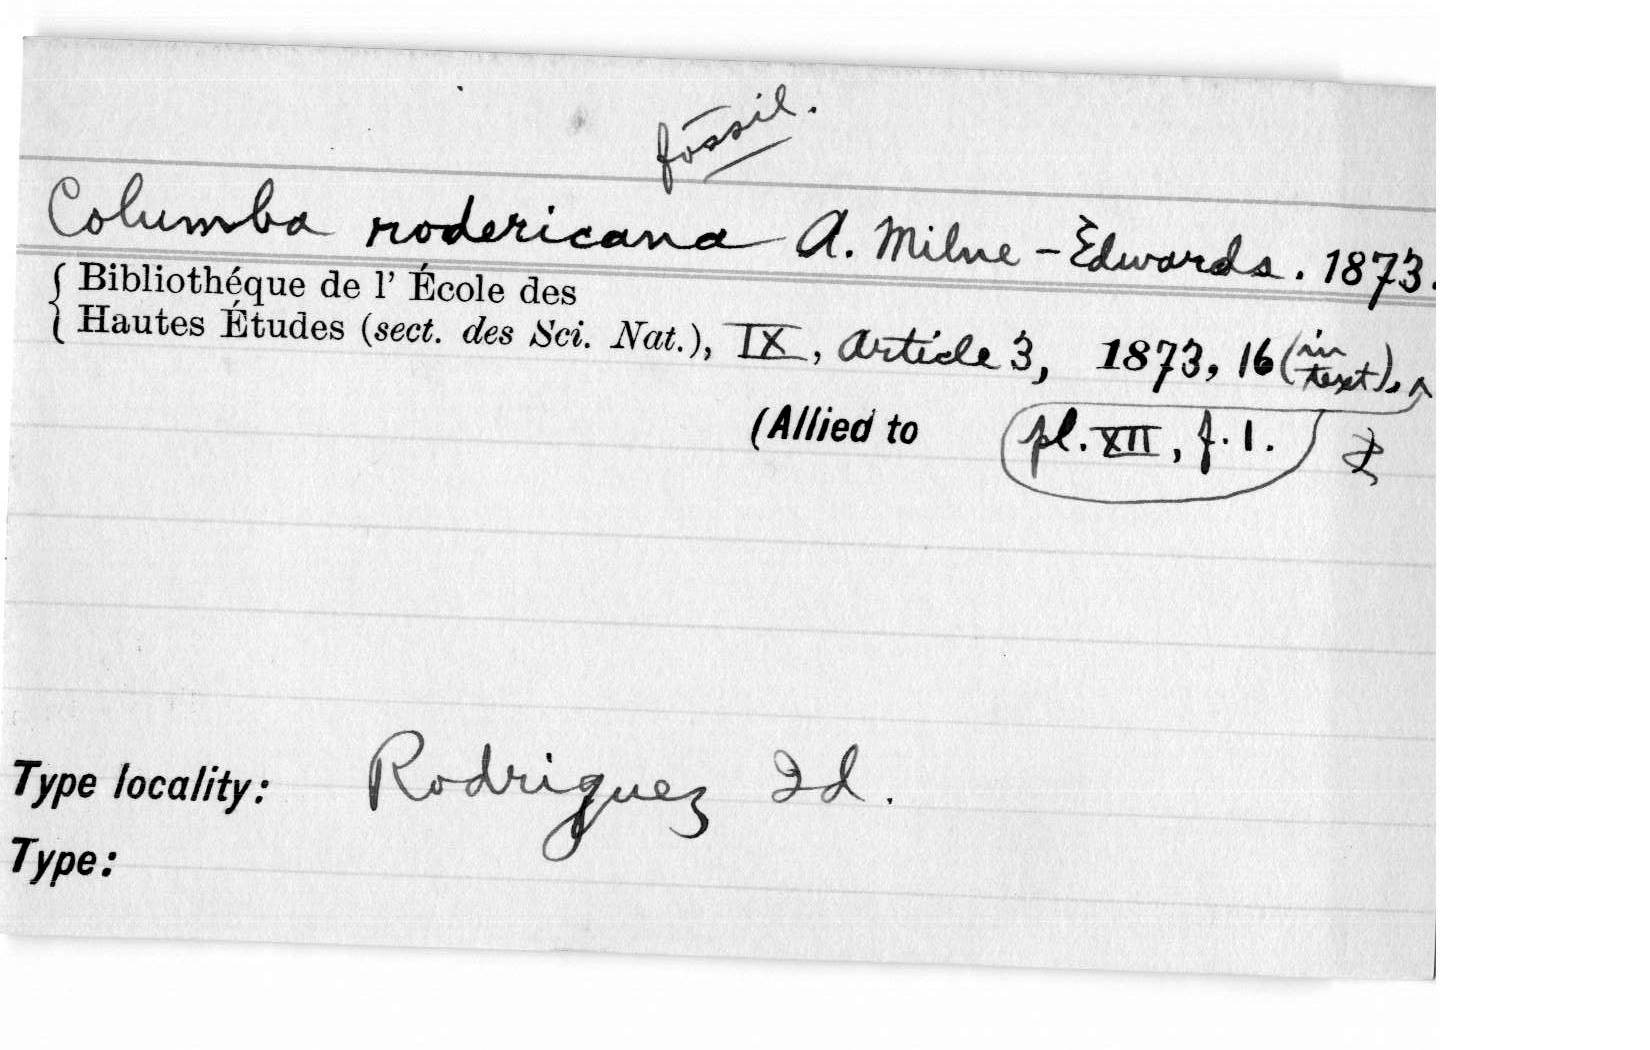 fossil.
Columba rodericana A. Milne-Edwards. 1873.
{ Bibliothéque de l' École des
{ Hautes Études (sect. des Sci. Nat.), IX, Article 3, 1873, 16 (in text),
(Allied to pl. XII, f. 1.
Type locality: Rodriguez Id.
Type: